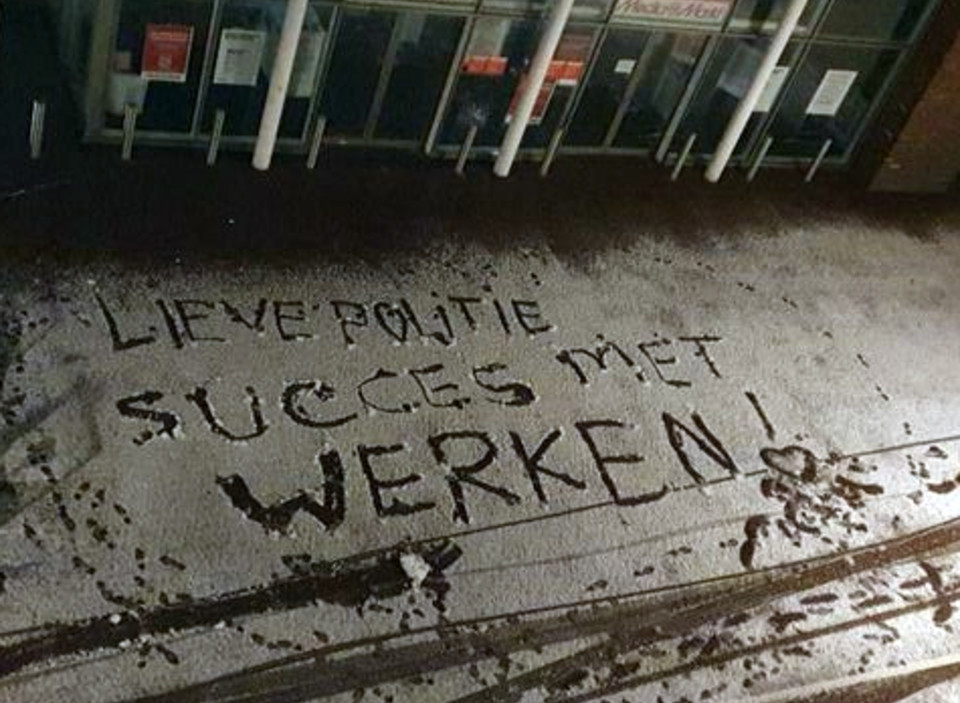 Media Markt
LIEVE POLITIE
SUCCES MET
WERKEN!